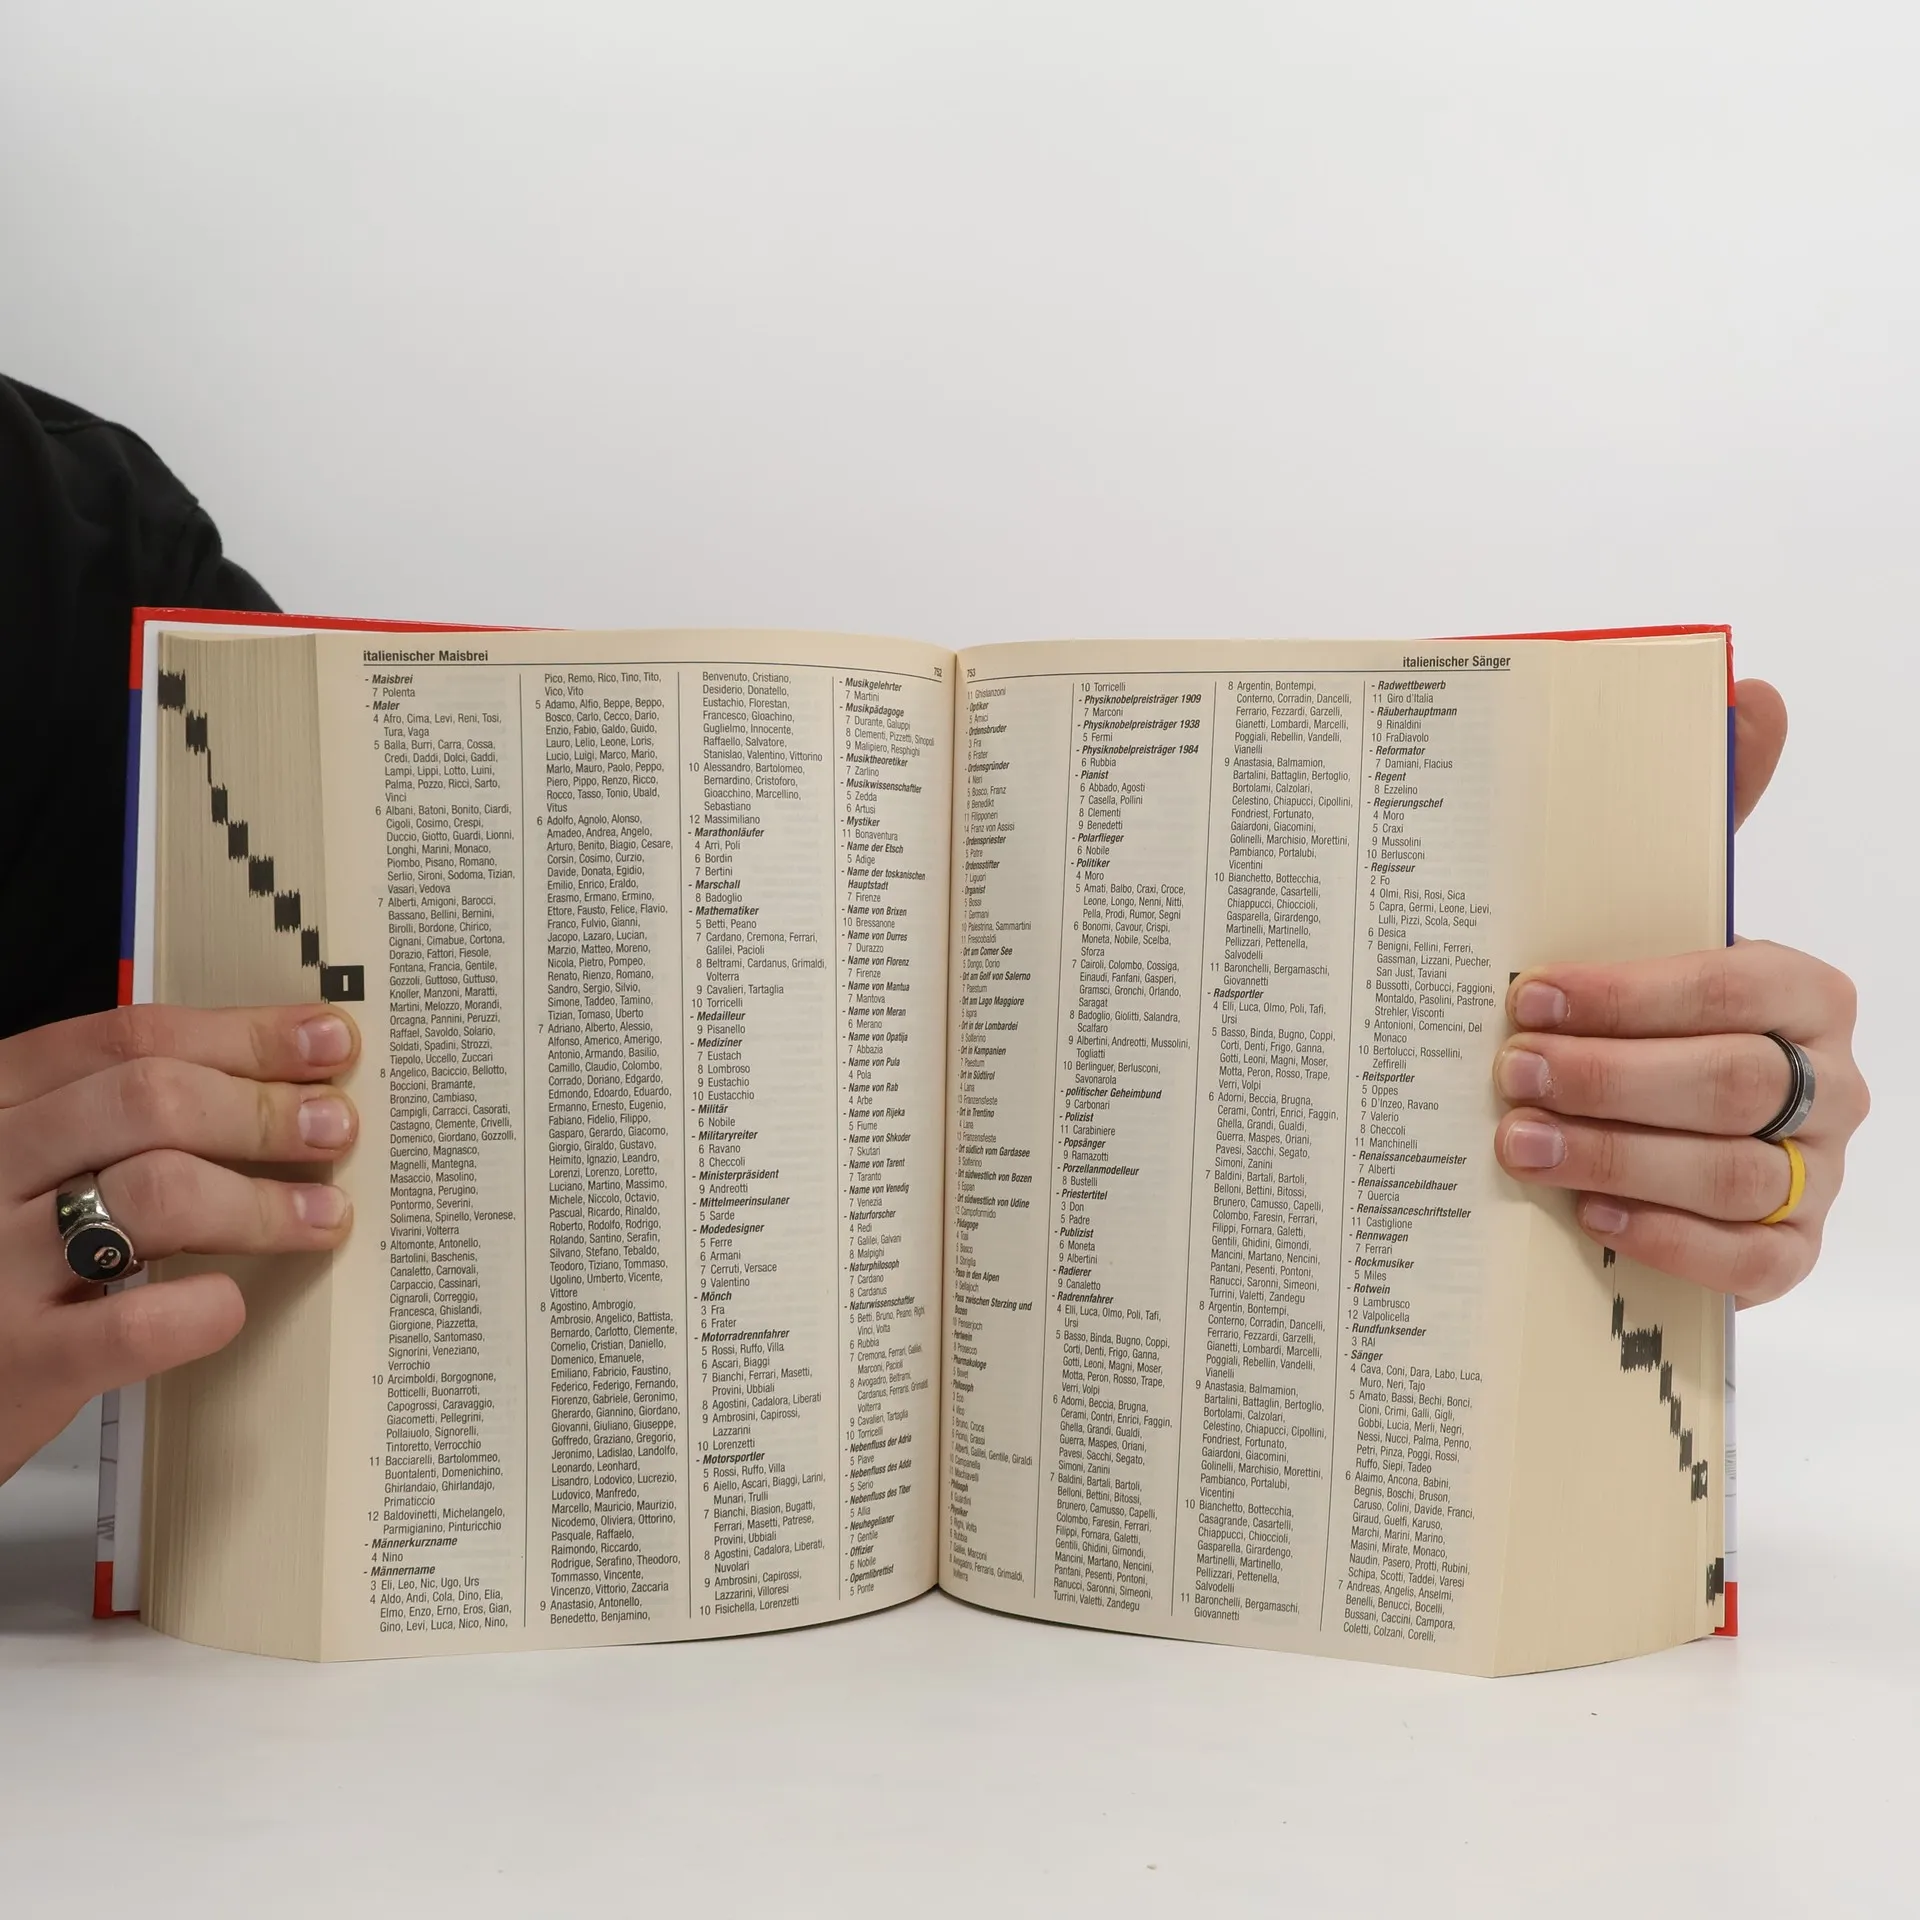 italienischer Maisbrei
752
- Maisbrei
7 Polenta
- Maler
4 Afro, Cima, Levi, Reni, Tosi,
Tura, Vaga
5 Balla, Burri, Carra, Cossa,
Credi, Daddi, Dolci, Gaddi,
Lampi, Lippi, Lotto, Luini,
Palma, Pozzo, Ricci, Sarto,
Vinci
6 Albani, Batoni, Bonito, Ciardi,
Cigoli, Cosimo, Crespi,
Duccio, Giotto, Guardi, Lionni,
Longhi, Marini, Monaco,
Piombo, Pisano, Romano,
Serlio, Sironi, Sodoma, Tizian,
Vasari, Vedova
7 Alberti, Amigoni, Barocci,
Bassano, Bellini, Bernini,
Birolli, Bordone, Chirico,
Cignani, Cimabue, Cortona,
Dorazio, Fattori, Fiesole,
Fontana, Francia, Gentile,
Gozzoli, Guttoso, Guttuso,
Knoller, Manzoni, Maratti,
Martini, Melozzo, Morandi,
Orcagna, Pannini, Peruzzi,
Raffael, Savoldo, Solario,
Soldati, Spadini, Strozzi,
Tiepolo, Uccello, Zuccari
8 Angelico, Baciccio, Bellotto,
Boccioni, Bramante,
Bronzino, Cambiaso,
Campigli, Carracci, Casorati,
Castagno, Clemente, Crivelli,
Domenico, Giordano, Gozzolli,
Guercino, Magnasco,
Magnelli, Mantegna,
Masaccio, Masolino,
Montagna, Perugino,
Pontormo, Severini,
Solimena, Spinello, Veronese,
Vivarini, Volterra
9 Altomonte, Antonello,
Bartolini, Baschenis,
Canaletto, Carnovali,
Carpaccio, Cassinari,
Cignaroli, Correggio,
Francesca, Ghislandi,
Giorgione, Piazzetta,
Pisanello, Santomaso,
Signorini, Veneziano,
Verrochio
10 Arcimboldi, Borgognone,
Botticelli, Buonarroti,
Capogrossi, Caravaggio,
Giacometti, Pellegrini,
Pollaiuolo, Signorelli,
Tintoretto, Verrocchio
11 Bacciarelli, Bartolommeo,
Buontalenti, Domenichino,
Ghirlandaio, Ghirlandajo,
Primaticcio
12 Baldovinetti, Michelangelo,
Parmigianino, Pinturicchio
- Männerkurzname
4 Nino
- Männername
3 Eli, Leo, Nic, Ugo, Urs
4 Aldo, Andi, Cola, Dino, Elia,
Elmo, Enzo, Erno, Eros, Gian,
Gino, Levi, Luca, Nico, Nino,
Pico, Remo, Rico, Tino, Tito,
Vico, Vito
5 Adamo, Alfio, Beppe, Beppo,
Bosco, Carlo, Cecco, Dario,
Enzio, Fabio, Galdo, Guido,
Lauro, Lelio, Leone, Loris,
Lucio, Luigi, Marco, Mario,
Marlo, Mauro, Paolo, Peppo,
Piero, Pippo, Renzo, Ricco,
Rocco, Tasso, Tonio, Ubald,
Vitus
6 Adolfo, Agnolo, Alonso,
Amadeo, Andrea, Angelo,
Arturo, Benito, Biagio, Cesare,
Corsin, Cosimo, Curzio,
Davide, Donata, Egidio,
Emilio, Enrico, Eraldo,
Erasmo, Ermano, Ermino,
Ettore, Fausto, Felice, Flavio,
Franco, Fulvio, Gianni,
Jacopo, Lazaro, Lucian,
Marzio, Matteo, Moreno,
Nicola, Pietro, Pompeo,
Renato, Rienzo, Romano,
Sandro, Sergio, Silvio,
Simone, Taddeo, Tamino,
Tizian, Tomaso, Uberto
7 Adriano, Alberto, Alessio,
Alfonso, Americo, Amerigo,
Antonio, Armando, Basilio,
Camillo, Claudio, Colombo,
Corrado, Doriano, Edgardo,
Edmondo, Edoardo, Eduardo,
Ermanno, Ernesto, Eugenio,
Fabiano, Fidelio, Filippo,
Gasparo, Gerardo, Giacomo,
Giorgio, Giraldo, Gustavo,
Heimito, Ignazio, Leandro,
Lorenzi, Lorenzo, Loretto,
Luciano, Martino, Massimo,
Michele, Niccolo, Octavio,
Pascual, Ricardo, Rinaldo,
Roberto, Rodolfo, Rodrigo,
Rolando, Santino, Serafin,
Silvano, Stefano, Tebaldo,
Teodoro, Tiziano, Tommaso,
Ugolino, Umberto, Vicente,
Vittore
8 Agostino, Ambrogio,
Ambrosio, Angelico, Battista,
Bernardo, Carlotto, Clemente,
Cornelio, Cristian, Daniello,
Domenico, Emanuele,
Emiliano, Fabricio, Faustino,
Federico, Federigo, Fernando,
Fiorenzo, Gabriele, Geronimo,
Gherardo, Giannino, Giordano,
Giovanni, Giuliano, Giuseppe,
Goffredo, Graziano, Gregorio,
Jeronimo, Ladislao, Landolfo,
Leonardo, Leonhard,
Lisandro, Lodovico, Lucrezio,
Ludovico, Manfredo,
Marcello, Mauricio, Maurizio,
Nicodemo, Oliviera, Ottorino,
Pasquale, Raffaelo,
Raimondo, Riccardo,
Rodrigue, Serafino, Theodoro,
Tommasso, Vincente,
Vincenzo, Vittorio, Zaccaria
9 Anastasio, Antonello,
Benedetto, Benjamino,
Benvenuto, Cristiano,
Desiderio, Donatello,
Eustachio, Florestan,
Francesco, Gioachino,
Guglielmo, Innocente,
Raffaello, Salvatore,
Stanislao, Valentino, Vittorino
10 Alessandro, Bartolomeo,
Bernardino, Cristoforo,
Gioacchino, Marcellino,
Sebastiano
12 Massimiliano
- Marathonläufer
4 Arri, Poli
6 Bordin
7 Bertini
- Marschall
8 Badoglio
- Mathematiker
5 Betti, Peano
7 Cardano, Cremona, Ferrari,
Galilei, Pacioli
8 Beltrami, Cardanus, Grimaldi,
Volterra
9 Cavalieri, Tartaglia
10 Torricelli
- Medailleur
9 Pisanello
- Mediziner
7 Eustach
8 Lombroso
9 Eustachio
10 Eustacchio
- Militär
6 Nobile
- Militaryreiter
6 Ravano
8 Checcoli
- Ministerpräsident
9 Andreotti
- Mittelmeerinsulaner
5 Sarde
- Modedesigner
5 Ferre
6 Armani
7 Cerruti, Versace
9 Valentino
- Mönch
3 Fra
6 Frater
- Motorradrennfahrer
5 Rossi, Ruffo, Villa
6 Ascari, Biaggi
7 Bianchi, Ferrari, Masetti,
Provini, Ubbiali
8 Agostini, Cadalora, Liberati
9 Ambrosini, Capirossi,
Lazzarini
10 Lorenzetti
- Motorsportler
5 Rossi, Ruffo, Villa
6 Aiello, Ascari, Biaggi, Larini,
Munari, Trulli
7 Bianchi, Biasion, Bugatti,
Ferrari, Masetti, Patrese,
Provini, Ubbiali
8 Agostini, Cadalora, Liberati,
Nuvolari
9 Ambrosini, Capirossi,
Lazzarini, Villoresi
10 Fisichella, Lorenzetti
- Musikgelehrter
7 Martini
- Musikpädagoge
7 Durante, Galuppi
8 Clementi, Pizzetti, Sinopoli
9 Malipiero, Respighi
- Musiktheoretiker
7 Zarlino
- Musikwissenschaftler
5 Zedda
6 Artusi
- Mystiker
11 Bonaventura
- Name der Etsch
5 Adige
- Name der toskanischen
Hauptstadt
7 Firenze
- Name von Brixen
10 Bressanone
- Name von Durres
7 Durazzo
- Name von Florenz
7 Firenze
- Name von Mantua
7 Mantova
- Name von Meran
6 Merano
- Name von Opatija
7 Abbazia
- Name von Pula
4 Pola
- Name von Rab
4 Arbe
- Name von Rijeka
5 Fiume
- Name von Shkoder
7 Skutari
- Name von Tarent
7 Taranto
- Name von Venedig
7 Venezia
- Naturforscher
4 Redi
7 Galilei, Galvani
8 Malpighi
- Naturphilosoph
7 Cardano
8 Cardanus
- Naturwissenschaftler
5 Betti, Bruno, Peano, Righi,
Vinci, Volta
6 Rubbia
7 Cremona, Ferrari, Galilei,
Marconi, Pacioli
8 Avogadro, Beltrami,
Cardanus, Ferraris, Grimaldi,
Volterra
9 Cavalieri, Tartaglia
10 Torricelli
- Nebenfluss der Adria
5 Piave
- Nebenfluss des Adda
5 Serio
- Nebenfluss des Tiber
5 Allia
- Neuhegelianer
7 Gentile
- Offizier
6 Nobile
- Opernlibrettist
5 Ponte
753
italienischer Sänger
11 Ghislanzoni
- Optiker
5 Amici
- Ordensbruder
3 Fra
6 Frater
- Ordensgründer
4 Neri
5 Bosco, Franz
8 Benedikt
11 Filipponen
14 Franz von Assisi
- Ordenspriester
5 Patre
- Ordensstifter
7 Liguori
- Organist
5 Bossi
7 Germani
10 Palestrina, Sammartini
11 Frescobaldi
- Ort am Comer See
5 Dongo, Dorio
- Ort am Golf von Salerno
7 Paestum
- Ort am Lago Maggiore
5 Ispra
- Ort in der Lombardei
9 Solferino
- Ort in Kampanien
7 Paestum
- Ort in Südtirol
4 Lana
13 Franzensfeste
- Ort in Trentino
4 Lana
13 Franzensfeste
- Ort südlich vom Gardasee
9 Solferino
- Ort südwestlich von Bozen
5 Eppan
- Ort südwestlich von Udine
12 Campoformido
- Pädagoge
5 Bosco
- Pass in den Alpen
9 Sellajoch
- Pass zwischen Sterzing und
Bozen
10 Penserjoch
- Perlwein
8 Prosecco
- Pharmakologe
5 Bovet
- Philosoph
3 Eco
4 Vico
5 Bruno, Croce
6 Ficino, Grassi
7 Alberti, Galilei, Gentile, Giraldi
10 Campanella
11 Machiavelli
8 Guardini
- Physiker
5 Righi, Volta
6 Rubbia
7 Galilei, Marconi
8 Avogadro, Ferraris, Grimaldi,
Volterra
10 Torricelli
- Physiknobelpreisträger 1909
7 Marconi
- Physiknobelpreisträger 1938
5 Fermi
- Physiknobelpreisträger 1984
6 Rubbia
- Pianist
6 Abbado, Agosti
7 Casella, Pollini
8 Clementi
9 Benedetti
- Polarflieger
6 Nobile
- Politiker
4 Moro
5 Amati, Balbo, Craxi, Croce,
Leone, Longo, Nenni, Nitti,
Pella, Prodi, Rumor, Segni
6 Bonomi, Cavour, Crispi,
Moneta, Nobile, Scelba,
Sforza
7 Cairoli, Colombo, Cossiga,
Einaudi, Fanfani, Gasperi,
Gramsci, Gronchi, Orlando,
Saragat
8 Badoglio, Giolitti, Salandra,
Scalfaro
9 Albertini, Andreotti, Mussolini,
Togliatti
10 Berlinguer, Berlusconi,
Savonarola
- politischer Geheimbund
9 Carbonari
- Polizist
11 Carabiniere
- Popsänger
9 Ramazotti
- Porzellanmodelleur
8 Bustelli
- Priestertitel
3 Don
5 Padre
- Publizist
6 Moneta
9 Albertini
- Radierer
9 Canaletto
- Radrennfahrer
4 Elli, Luca, Olmo, Poli, Tafi,
Ursi
5 Basso, Binda, Bugno, Coppi,
Corti, Denti, Frigo, Ganna,
Gotti, Leoni, Magni, Moser,
Motta, Peron, Rosso, Trape,
Verri, Volpi
6 Adorni, Beccia, Brugna,
Cerami, Contri, Enrici, Faggin,
Ghella, Grandi, Gualdi,
Guerra, Maspes, Oriani,
Pavesi, Sacchi, Segato,
Simoni, Zanini
7 Baldini, Bartali, Bartoli,
Belloni, Bettini, Bitossi,
Brunero, Camusso, Capelli,
Colombo, Faresin, Ferrari,
Filippi, Fornara, Galetti,
Gentili, Ghidini, Gimondi,
Mancini, Martano, Nencini,
Pantani, Pesenti, Pontoni,
Ranucci, Saronni, Simeoni,
Turrini, Valetti, Zandegu
8 Argentin, Bontempi,
Conterno, Corradin, Dancelli,
Ferrario, Fezzardi, Garzelli,
Gianetti, Lombardi, Marcelli,
Poggiali, Rebellin, Vandelli,
Vianelli
9 Anastasia, Balmamion,
Bartalini, Battaglin, Bertoglio,
Bortolami, Calzolari,
Celestino, Chiapucci, Cipollini,
Fondriest, Fortunato,
Gaiardoni, Giacomini,
Golinelli, Marchisio, Morettini,
Pambianco, Portalubi,
Vicentini
10 Bianchetto, Bottecchia,
Casagrande, Casartelli,
Chiappucci, Chioccioli,
Gasparella, Girardengo,
Martinelli, Martinello,
Pellizzari, Pettenella,
Salvodelli
11 Baronchelli, Bergamaschi,
Giovannetti
- Radsportler
4 Elli, Luca, Olmo, Poli, Tafi,
Ursi
5 Basso, Binda, Bugno, Coppi,
Corti, Denti, Frigo, Ganna,
Gotti, Leoni, Magni, Moser,
Motta, Peron, Rosso, Trape,
Verri, Volpi
6 Adorni, Beccia, Brugna,
Cerami, Contri, Enrici, Faggin,
Ghella, Grandi, Gualdi,
Guerra, Maspes, Oriani,
Pavesi, Sacchi, Segato,
Simoni, Zanini
7 Baldini, Bartali, Bartoli,
Belloni, Bettini, Bitossi,
Brunero, Camusso, Capelli,
Colombo, Faresin, Ferrari,
Filippi, Fornara, Galetti,
Gentili, Ghidini, Gimondi,
Mancini, Martano, Nencini,
Pantani, Pesenti, Pontoni,
Ranucci, Saronni, Simeoni,
Turrini, Valetti, Zandegu
8 Argentin, Bontempi,
Conterno, Corradin, Dancelli,
Ferrario, Fezzardi, Garzelli,
Gianetti, Lombardi, Marcelli,
Poggiali, Rebellin, Vandelli,
Vianelli
9 Anastasia, Balmamion,
Bartalini, Battaglin, Bertoglio,
Bortolami, Calzolari,
Celestino, Chiapucci, Cipollini,
Fondriest, Fortunato,
Gaiardoni, Giacomini,
Golinelli, Marchisio, Morettini,
Pambianco, Portalubi,
Vicentini
10 Bianchetto, Bottecchia,
Casagrande, Casartelli,
Chiappucci, Chioccioli,
Gasparella, Girardengo,
Martinelli, Martinello,
Pellizzari, Pettenella,
Salvodelli
11 Baronchelli, Bergamaschi,
Giovannetti
- Radwettbewerb
11 Giro d'Italia
- Räuberhauptmann
9 Rinaldini
10 FraDiavolo
- Reformator
7 Damiani, Flacius
- Regent
8 Ezzelino
- Regierungschef
4 Moro
5 Craxi
9 Mussolini
10 Berlusconi
- Regisseur
2 Fo
4 Olmi, Risi, Rosi, Sica
5 Capra, Germi, Leone, Lievi,
Lulli, Pizzi, Scola, Sequi
6 Desica
7 Benigni, Fellini, Ferreri,
Gassman, Lizzani, Puecher,
San Just, Taviani
8 Bussotti, Corbucci, Faggioni,
Montaldo, Pasolini, Pastrone,
Strehler, Visconti
9 Antonioni, Comencini, Del
Monaco
10 Bertolucci, Rossellini,
Zeffirelli
- Reitsportler
5 Oppes
6 D'Inzeo, Ravano
7 Valerio
8 Checcoli
11 Manchinelli
- Renaissancebaumeister
7 Alberti
- Renaissancebildhauer
7 Quercia
- Renaissanceschriftsteller
11 Castiglione
- Rennwagen
7 Ferrari
- Rockmusiker
5 Miles
- Rotwein
9 Lambrusco
12 Valpolicella
- Rundfunksender
3 RAI
- Sänger
4 Cava, Coni, Dara, Labo, Luca,
Muro, Neri, Tajo
5 Amato, Bassi, Bechi, Bonci,
Cioni, Crimi, Galli, Gigli,
Gobbi, Lucia, Merli, Negri,
Nessi, Nucci, Palma, Penno,
Petri, Pinza, Poggi, Rossi,
Ruffo, Siepi, Tadeo
6 Alaimo, Ancona, Babini,
Begnis, Boschi, Bruson,
Caruso, Colini, Davide, Franci,
Giraud, Guelfi, Karuso,
Marchi, Marini, Marino,
Masini, Mirate, Monaco,
Naudin, Pasero, Protti, Rubini,
Schipa, Scotti, Taddei, Varesi
7 Andreas, Angelis, Anselmi,
Benelli, Benucci, Bocelli,
Bussani, Caccini, Campora,
Coletti, Colzani, Corelli,